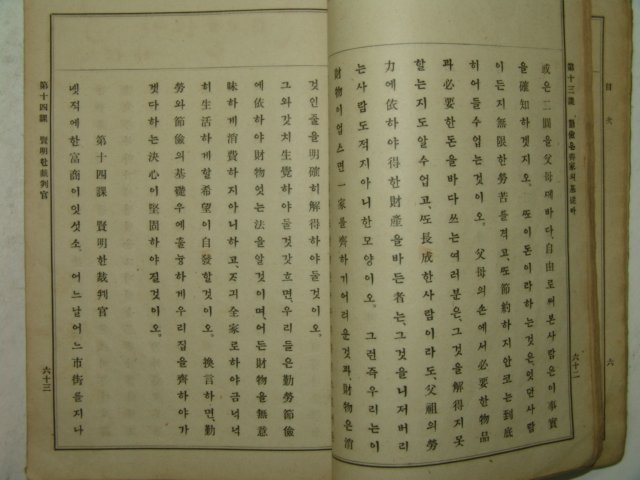 第十三課 勤儉은齊家의基礎라
六十二
或은二圓을父母께바다、自由로써본사람은、이事實
을確知하겟지오。 또이돈이라하는것은、엇던사람
이든지無限한勞苦를격고、또節約하지안코는到底
히어들수업는것이오。 父母의손에서必要한物品
과必要한돈을바다쓰는여러분은、그것을解得지못
할는지도알수업고、또長成한사람이라도、父祖의勞
力에依하야得한財產을바든者는、그것을니저버리
는사람도적지아니한모양이오。 그런즉우리는이
財物이업스면一家를齊하기어려운것과、財物은消
것인줄을明確히解得하야둘것이오。
그와갓치生覺하야둘것갓흐면、우리들은勤勞節儉
에依하야財物엇는法을알것이며、어든財物을無意
味하게消費하지아니하고、죠긔全家로하야금넉넉
히生活하게할希望이自發할것이오。 換言하면、勤
勞와節儉의基礎우에훌늉하게우리집을齊하야가
겟다하는決心이堅固하야질것이오。
第十四課 賢明한裁判官
녯적에한富商이잇섯소。 어느날어느市街를지나
第十四課 賢明한裁判官
六十三
目次
六